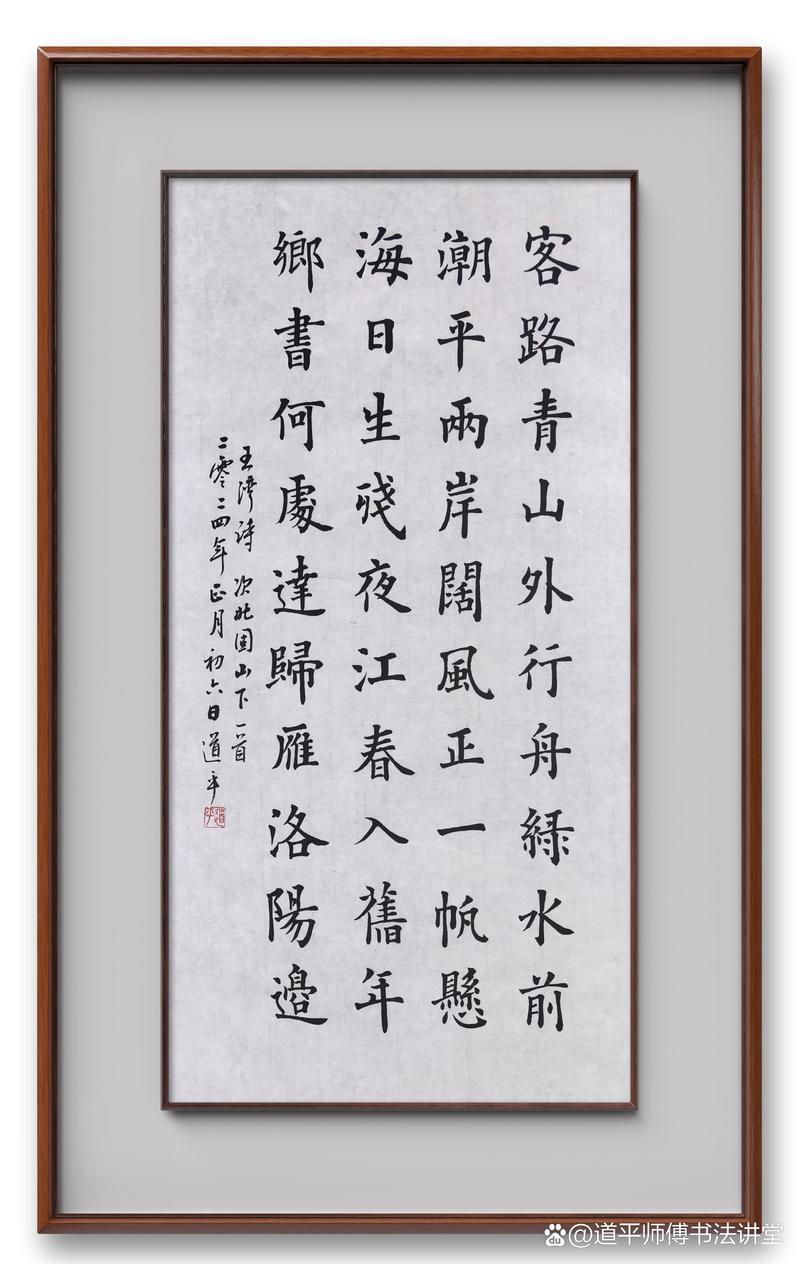 客路青山外行舟綠水前
潮平兩岸闊風正一帆懸
海日生殘夜江春入舊年
鄉書何處達歸雁洛陽邊
王灣詩 次北固山下一首
二零二四年正月初六日道平
道平
@道平师傅书法讲堂